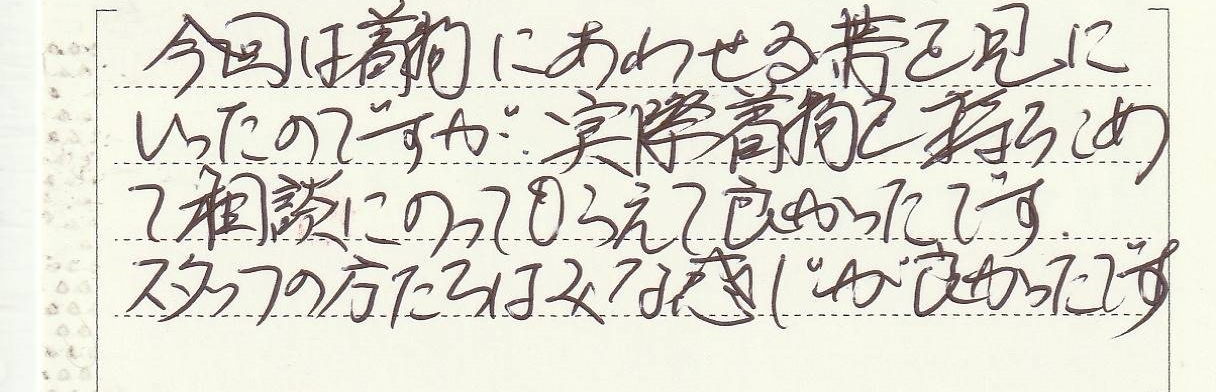 今回は着物にあわせる帯を見に
いったのですが、実際着物を持ちこめ
て相談にのってもらえて良かったです.
スタッフの方たちはみな感じが良かったです